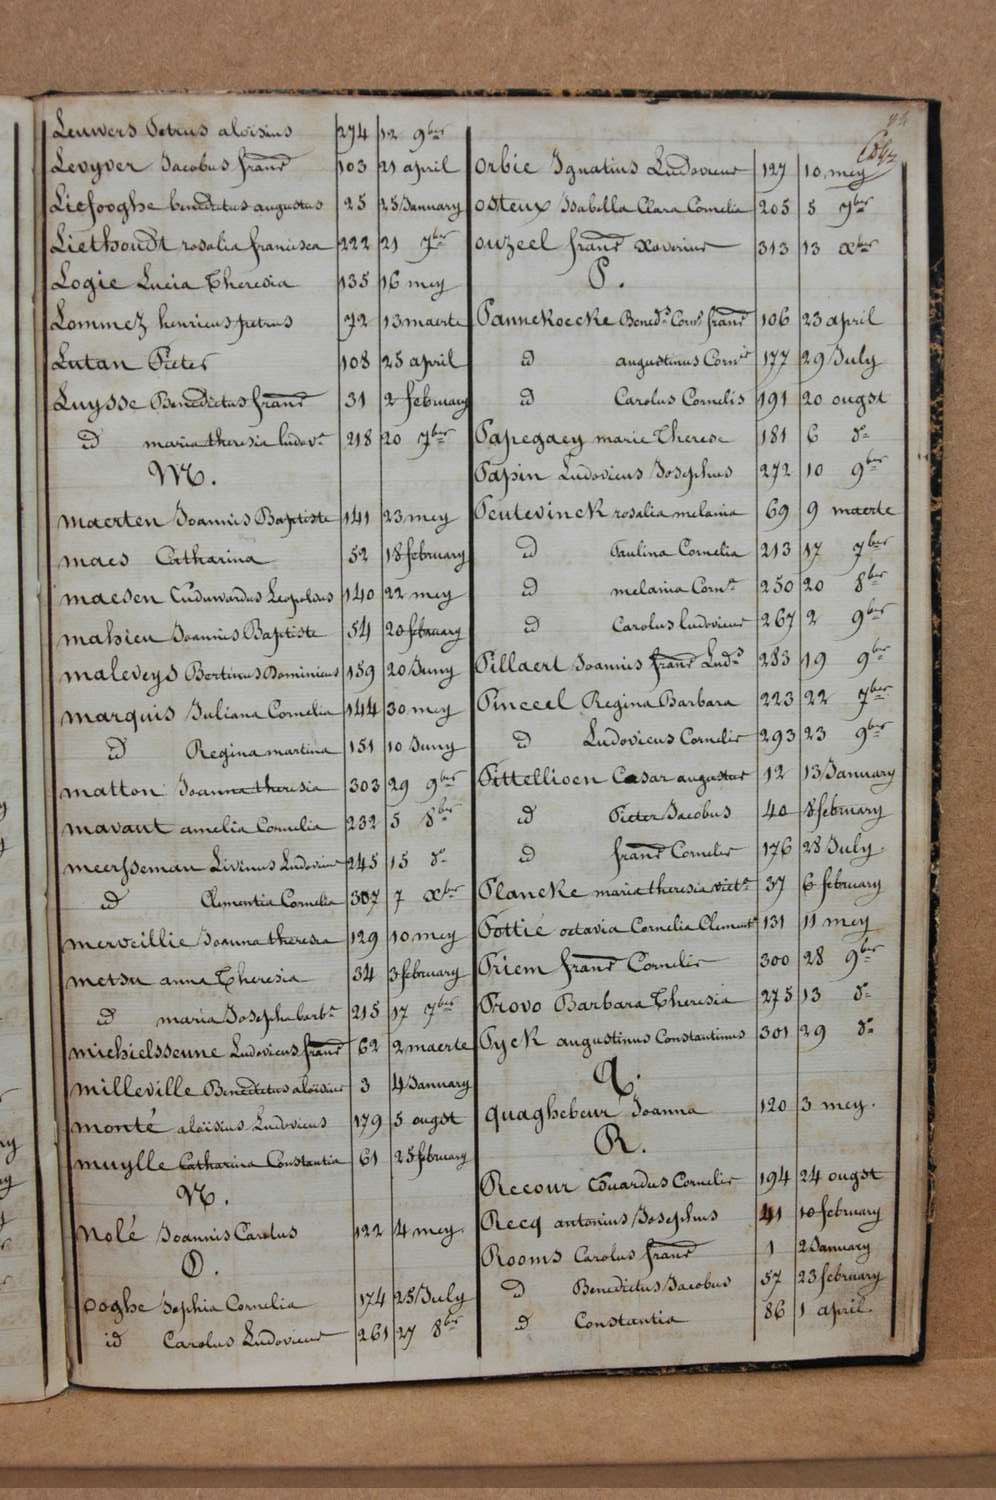 Leuwers Petrus aloisius 274 12 9ber
Levyver Jacobus franc 103 21 april
Liefooghe benedictus augustus 25 25 January
Liethoudt rosalia francisca 222 21 7ber
Logie Lucia Theresia 135 16 mey
Lommez henricus petrus 72 13 maerte
Lutan Pieter 108 25 april
Luysse Benedictus franc 31 2 february
id maria theresia ludov. 218 20 7ber
M.
maerten Joannis Baptiste 141 23 mey
maes Catharina 52 18 february
maesen Eduwardus Leopoldus 140 22 mey
mahieu Joannis Baptiste 54 20 february
maleveys Bertinus Dominicus 159 20 Juny
marquis Juliana Cornelia 144 30 mey
id Regina martina 151 10 Juny
matton Joanna theresia 303 29 9ber
mavaut amelia Cornelia 232 5 8ber
meersseman Livinus Ludovicus 245 15 do
id Clementia Cornelia 307 7 xber
merveillie Joanna theresia 129 10 mey
metsu anna Theresia 34 3 february
id maria Josepha barb. 215 17 7ber
michielsseune Ludovicus franc 62 2 maerte
milleville Benedictus aloisius 3 4 January
monté aloisius Ludovicus 179 5 ougst
muylle Catharina Constantia 61 25 february
N.
Nolé Joannis Carolus 122 4 mey
O.
ooghe Sophia Cornelia 174 25 July
id Carolus Ludovicus 261 27 8ber
orbie Ignatius Ludovicus 127 10 mey
osteux Isabella Clara Cornelia 205 5 7ber
ouzeel franc Xaverius 313 13 xber
P.
Pannekoecke Bened. Corn. franc 106 23 april
id augustinus Corn. 177 29 July
id Carolus Cornelis 191 20 ougst
Papegaey marie Therese 181 6 do
Papin Ludovicus Josephus 272 10 9ber
Peutevinck rosalia melania 69 9 maerte
id Paulina Cornelia 213 17 7ber
id melania Corn. 250 20 8ber
id Carolus ludovicus 267 2 9ber
Pillaert Joannis franc Lud. 283 19 9ber
Pinceel Regina Barbara 223 22 7ber
id Ludovicus Cornelis 293 23 9ber
Pittellioen Cesar augustus 12 13 January
id Pieter Jacobus 40 8 february
id franc Cornelis 176 28 July
Plancke maria theresia vict. 37 6 february
Pottié octavia Cornelia Clement. 131 11 mey
Priem franc Cornelis 300 28 9ber
Provo Barbara Theresia 275 13 do
Pyck augustinus Constantinus 301 29 do
Q.
quaghebeur Joanna 120 3 mey.
R.
Recour Eduardus Cornelis 194 24 ougst
Recq antonius Josephus 41 10 february
Rooms Carolus franc 1 2 January
id Benedictus Jacobus 57 23 february
id Constantia 86 1 april.